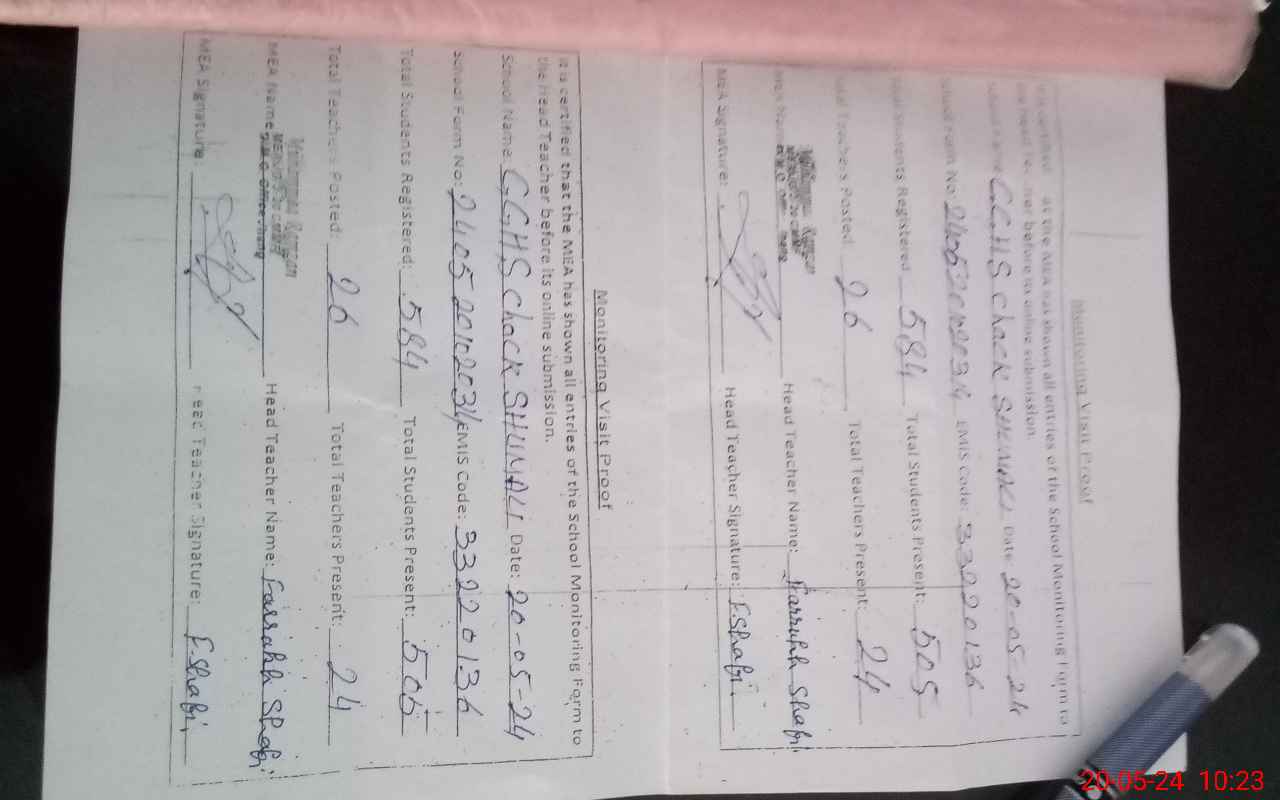 Monitoring Visit Proof
at the MEA has shown all entries of the School Monitoring Form to
before its online submission.
GGHS Chack SHUMALI Date: 20-05-24
Form No: EMIS Code: 33220136
Students Registered: 584 Total Students Present: 505
Total Teachers Posted: 26 Total Teachers Present: 24
MEA Name: Head Teacher Name: Farrukh Shafi
MEA Signature: Head Teacher Signature: F.Shafi
Monitoring Visit Proof
It is certified that the MEA has shown all entries of the School Monitoring Form to
the Head Teacher before its online submission.
School Name: GGHS Chack SHUMALI Date: 20-05-24
School Form No: EMIS Code: 33220136
Total Students Registered: 584 Total Students Present: 505
Total Teachers Posted: 26 Total Teachers Present: 24
MEA Name: Head Teacher Name: Farrukh Shafi
MEA Signature: Head Teacher Signature: F.Shafi
20-05-24 10:23